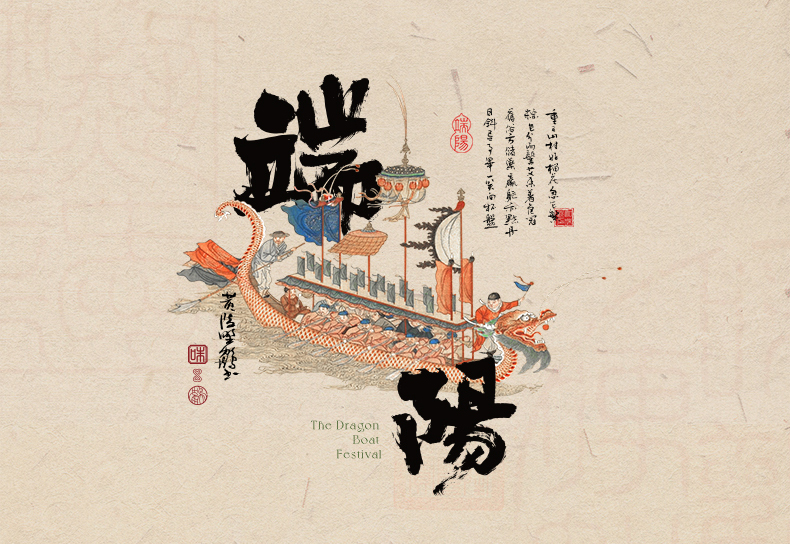 端
陽
端陽
重五山村好榴花忽已繁
粽包分兩髻艾束著危冠
舊俗方儲藥羸軀亦點丹
日斜吾事畢一笑向杯盤
黃陵野鶴書
The Dragon
Boat
Festival